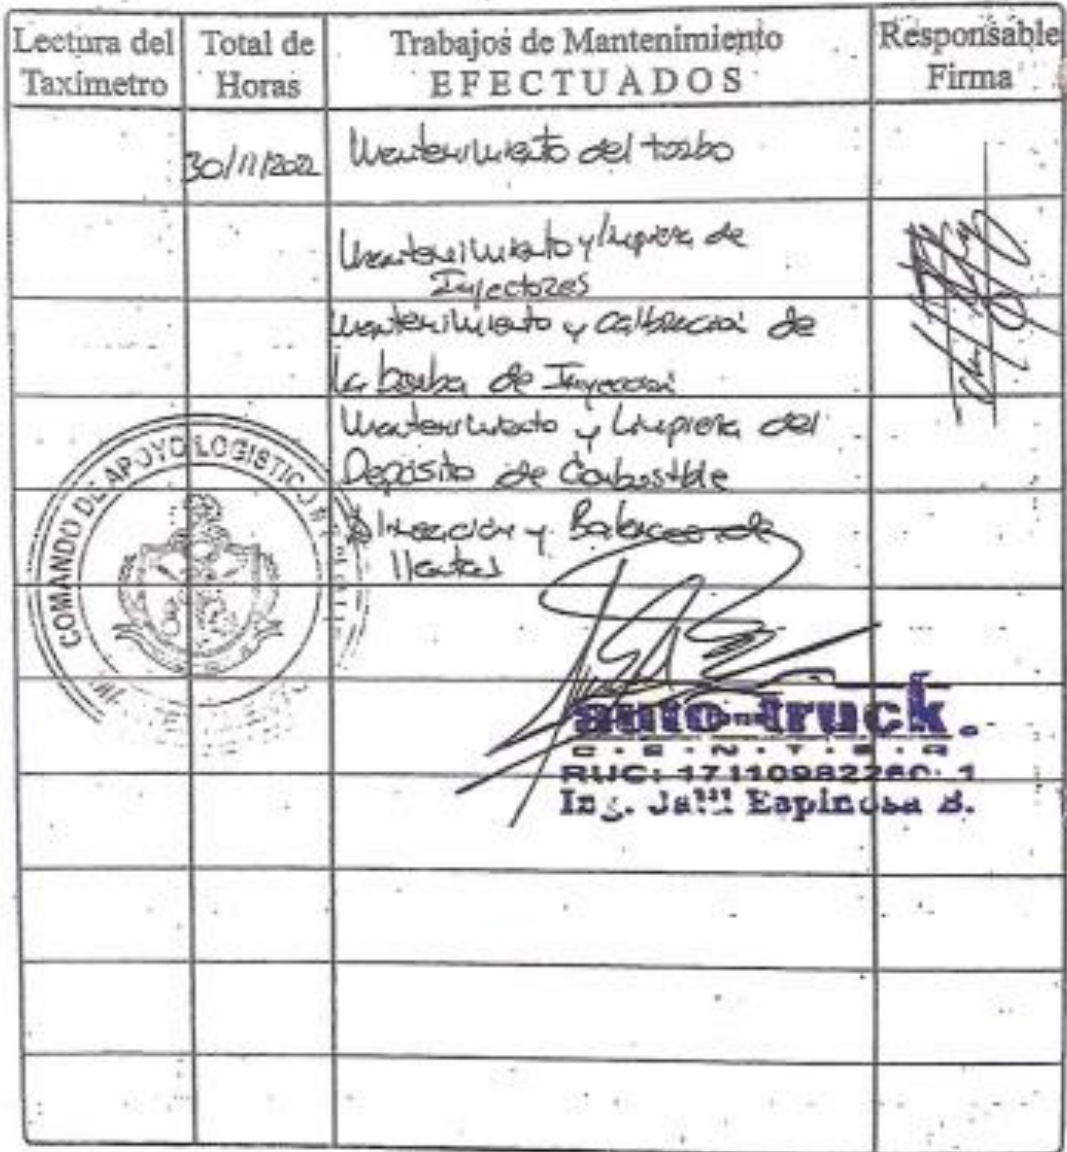 Lectura del Taximetro
Total de Horas
Trabajos de Mantenimiento
EFECTUADOS
Responsable
Firma
30/11/2022
Mantenimiento del turbo
Mantenimiento y limpieza de
Inyectores
Mantenimiento y calibración de
la bomba de Inyección
Mantenimiento y Limpieza del
Depósito de Combustible
Alineación y Balanceo de
llantas
COMANDO DE APOYO LOGISTICO
auto-truck.
C·E·N·T·E·R
RUC:
Espinosa B.